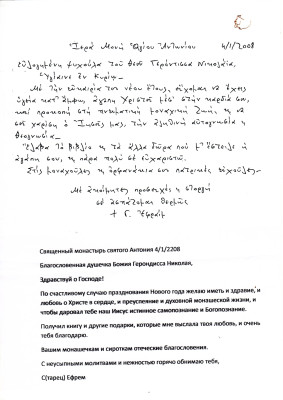 Ἱερά Μονή Ἁγίου Ἀντωνίου 4/1/2008
Εὐλογημένη ψυχούλα τοῦ Θεοῦ Γερόντισσα Νικολαΐα,
Ὑγίαινε ἐν Κυρίῳ.-
Μέ τήν εὐκαιρία τοῦ νέου ἔτους, εὔχομαι νά ἔχῃς
ὑγεία κατ' ἄμφω, ἀγάπη Χριστοῦ μέσ' στήν καρδιά σου,
καί προκοπή στή πνευματική μοναχική ζωή, κ νά
σοῦ χαρίσῃ ὁ Ἰησοῦς μας, τήν ἀληθινή αὐτογνωσία κ
θεογνωσία.-
Ἔλαβα τό βιβλίο κ τά ἄλλα δῶρα πού μ' ἔστειλε ἡ
ἀγάπη σου, κ πάρα πολύ σέ εὐχαριστῶ.
Στίς μοναχοῦλες κ ὀρφανάκια σου πατρικές εὐχοῦλες.-
Μέ ἀκοίμητες προσευχές κ στοργή
σέ ἀσπάζομαι θερμῶς
+ Γ. Ἐφραίμ
Священный монастырь святого Антония 4/1/2208
Благословенная душечка Божия Герондисса Николаи,
Здравствуй о Господе!
По счастливому случаю празднования Нового года желаю иметь и здравие, и
любовь о Христе в сердце, и преуспеяние и духовной монашеской жизни, и
чтобы даровал тебе наш Иисус истинное самопознание и Богопознание.
Получил книгу и другие подарки, которые мне выслала твоя любовь, и очень
тебя благодарю.
Вашим монашечкам и сироткам отеческие благословения.
С неусыпными молитвами и нежностью горячо обнимаю тебя,
С(тарец) Ефрем